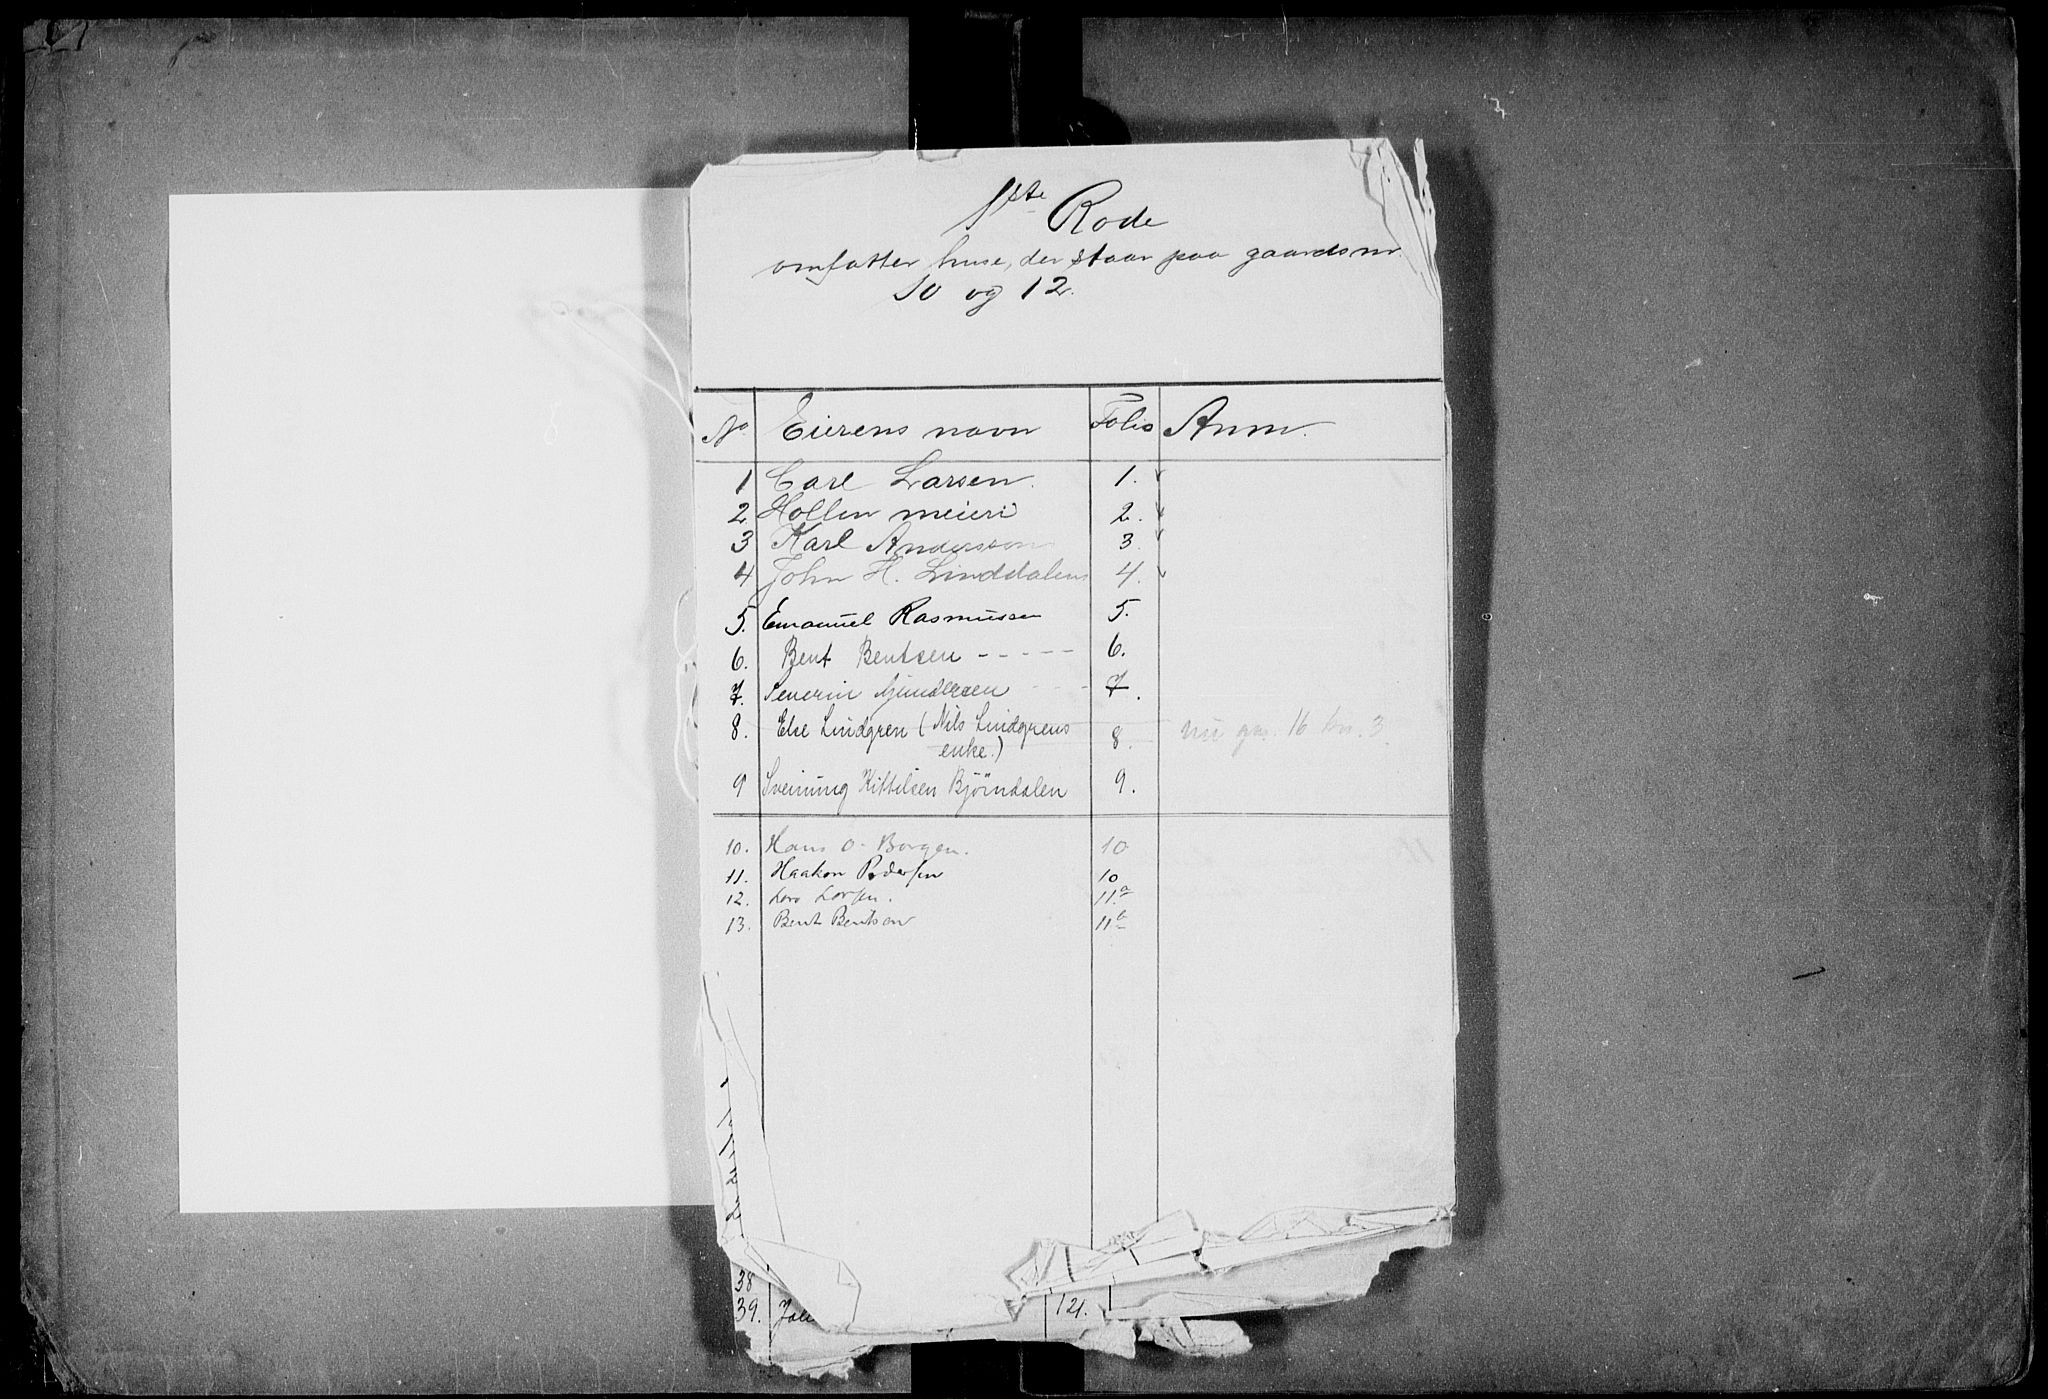 1ste Rode
omfatter huse, der staar paa gaardsnr.
10 og 12.
No Eierens navn Folio Anm.
1 Carl Larsen. 1.
2 Hollen meieri 2.
3 Karl Anderson 3.
4 John H. Linddalen 4.
5. Emanuel Rasmussen 5.
6. Bent Bentsen - - - - - 6.
7. Severin Gundersen - - - 7.
8. Else Lindgren (Nils Lindgrens 8. nu gnr. 16 bnr. 3.
enke.)
9 Sveinung Kittilsen Bjørndalen 9.
10. Hans O. Borgen. 10
11. Haakon Pedersen 10
12. Lars Larsen. 11a
13. Bent Bentsen 11b
38
39. 121.